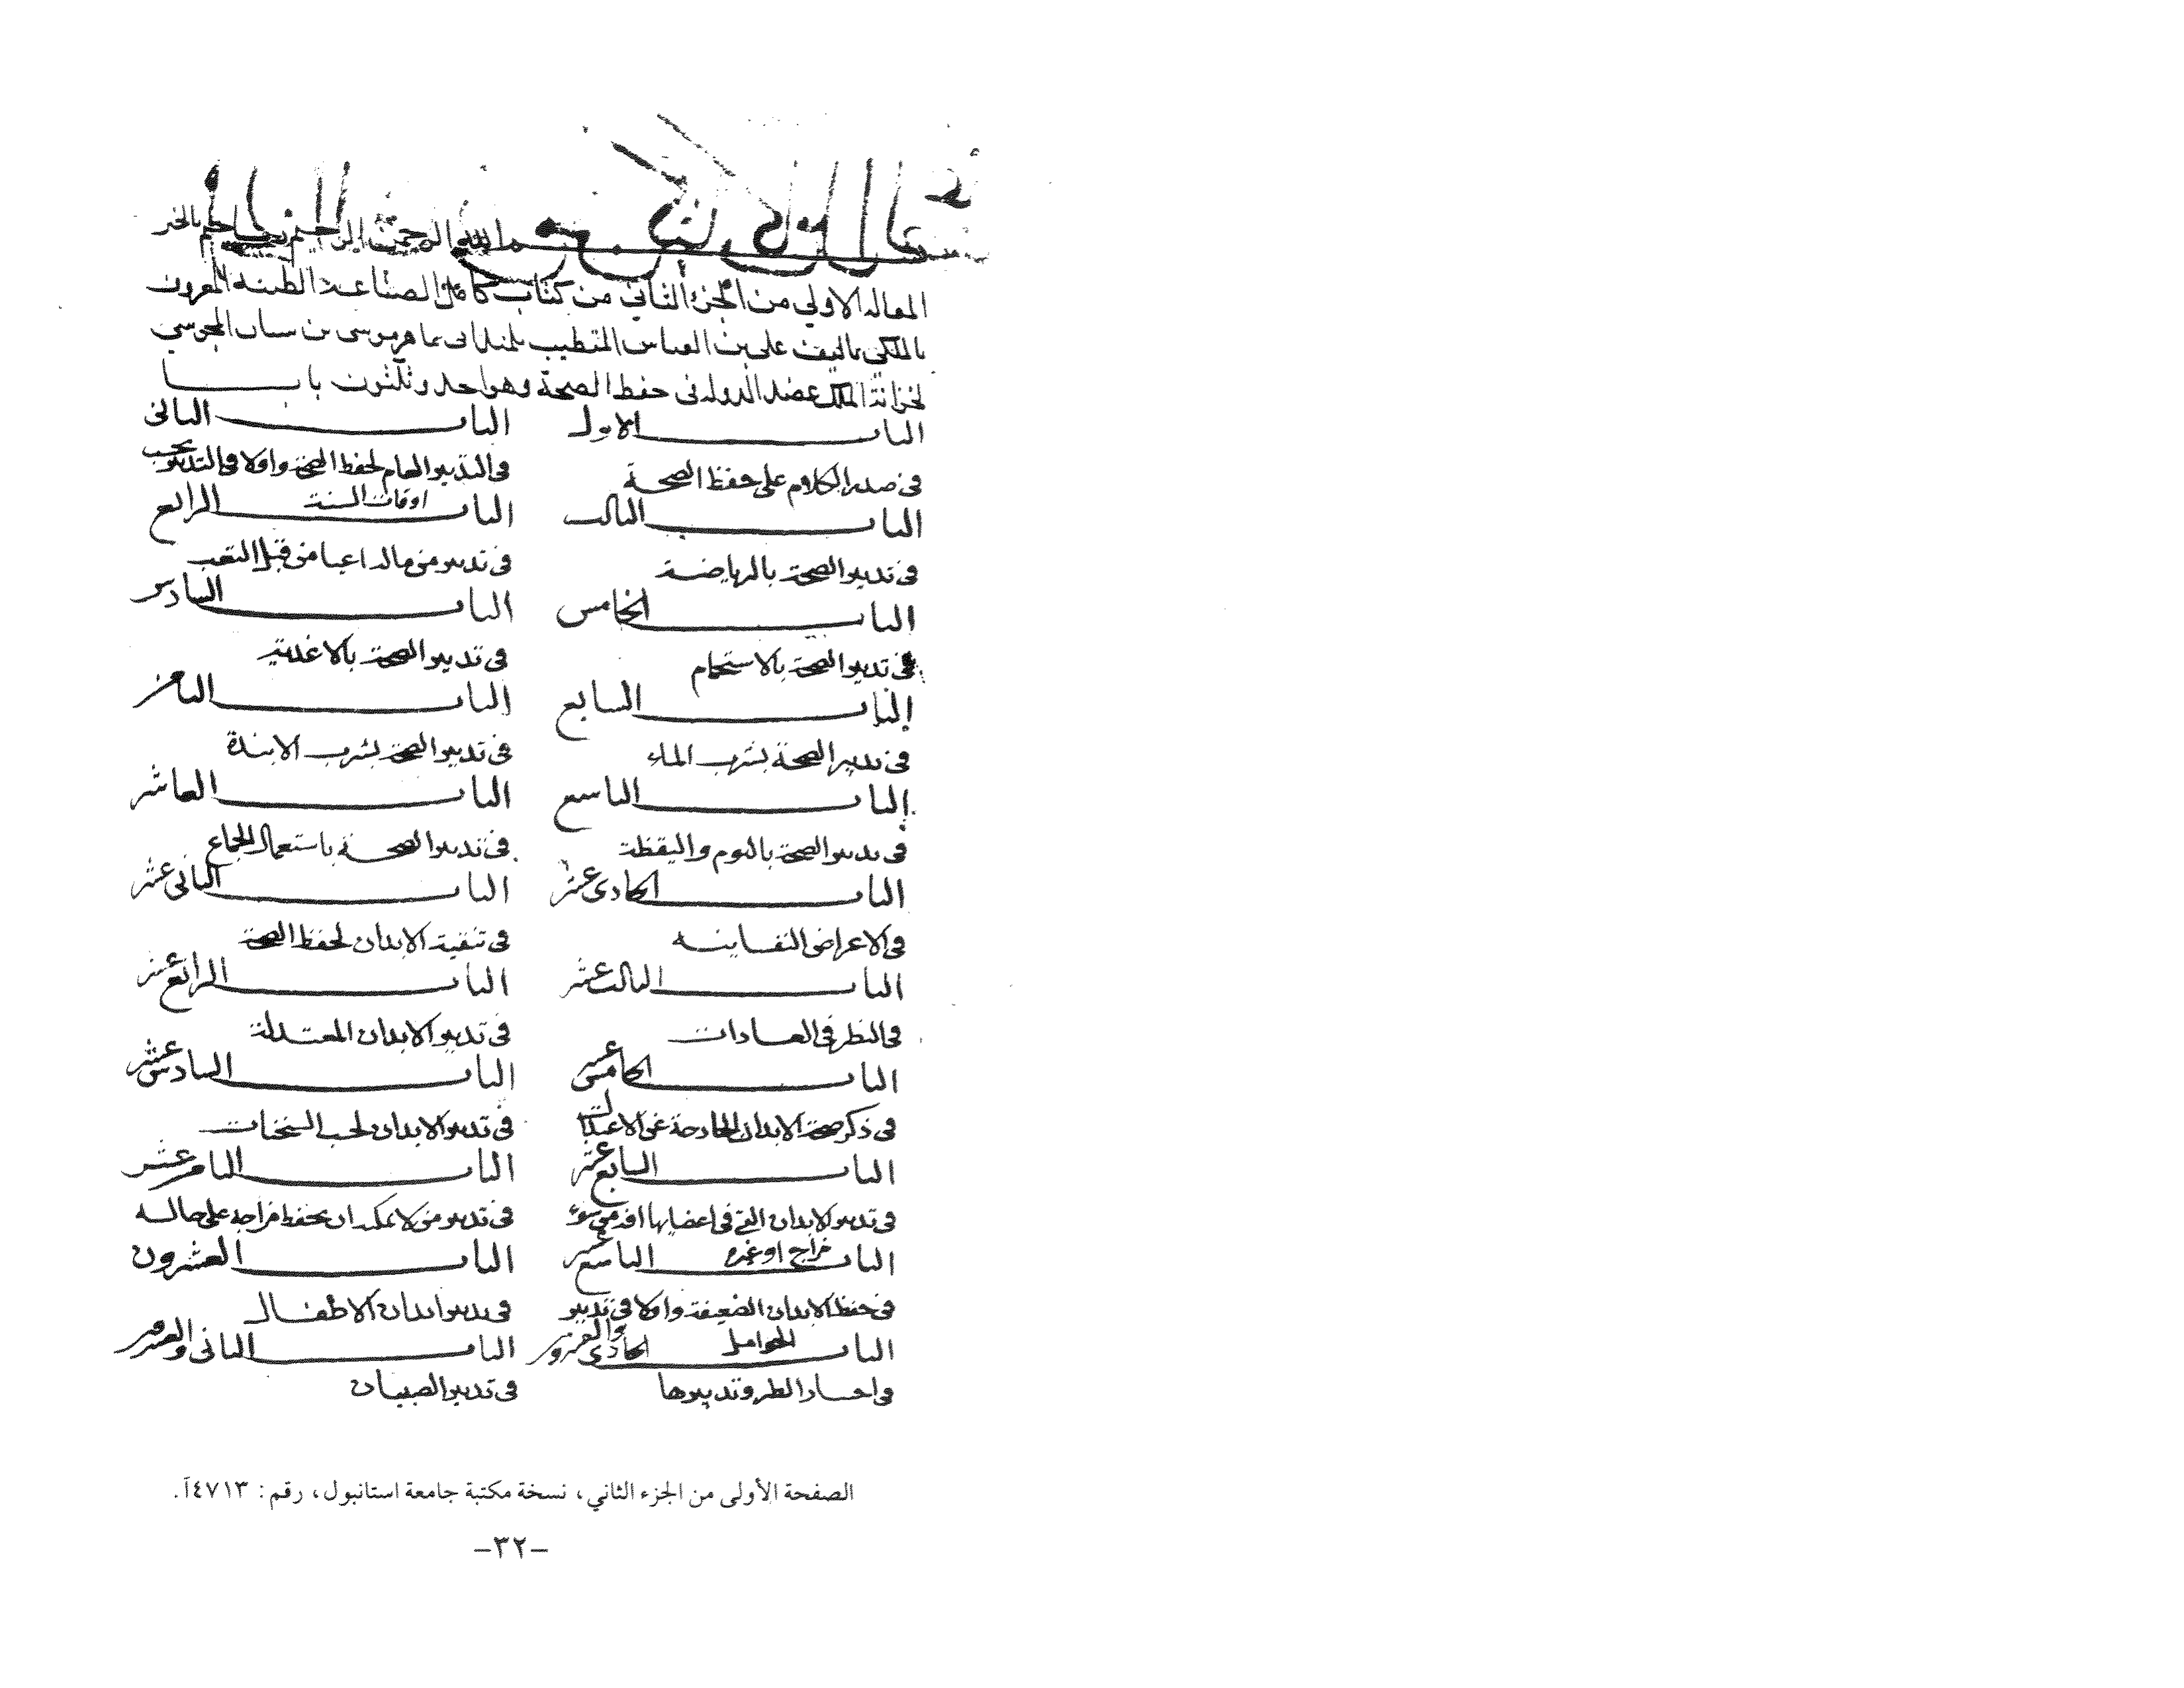 بسم الله الرحمن الرحيم
المقاله الاولي من الجزء الثاني من كتاب كامل الصناعة الطبية المعروف
بالملكي تاليف علي بن العباس المتطبب تلميذ ابي ماهر موسي بن سيار المجوسي
لخزانة الملك عضد الدوله في حفظ الصحة وهواحد وثلثون بابا
الباب الاول
في صدر الكلام علي حفظ الصحة
الباب الثاني
في التدبير العام لحفظ الصحة واولا في التدبير بحسب
اوقات السنة
الباب الثالث
في تدبير الصحة بالرياضة
الباب الرابع
في تدبير من ماله اعيا من قبل التعب
الباب الخامس
في تدبير الصحة بالاستحمام
الباب السادس
في تدبير الصحة بالاغدية
الباب السابع
في تدبير الصحة بشرب الماء
الباب الثامن
في تدبير الصحة بشرب الانبذة
الباب التاسع
في تدبير الصحة بالنوم واليقظة
الباب العاشر
في تدبير الصحة باستعمال الجماع
الباب الحادي عشر
في الاعراض النفسانيه
الباب الثاني عشر
في تنقية الابدان لحفظ الصحة
الباب الثالث عشر
في النظر في العادات
الباب الرابع عشر
في تدبير الابدان المعتدلة
الباب الخامس عشر
في ذكر صحة الابدان الخارجة عن الاعتدال
الباب السادس عشر
في تدبير الابدان السخنات
الباب السابع عشر
في تدبير الابدان التي في اعضايها افة من سوء
مزاج او غيره
الباب الثامن عشر
في تدبير من لا يمكنه ان يحفظ مزاجه علي حاله
الباب التاسع عشر
في حفظ الابدان الضعيفة واولا في تدبير
الحوامل
الباب العشرون
في تدبير ابدان الاطفال
الباب الحادي والعشرون
في اختيار الظير وتدبيرها
الباب الثاني والعشرون
في تدبير الصبيان
الصفحة الأولى من الجزء الثاني، نسخة مكتبة جامعة استانبول، رقم: ٤٧١٣آ.
–٣٢–